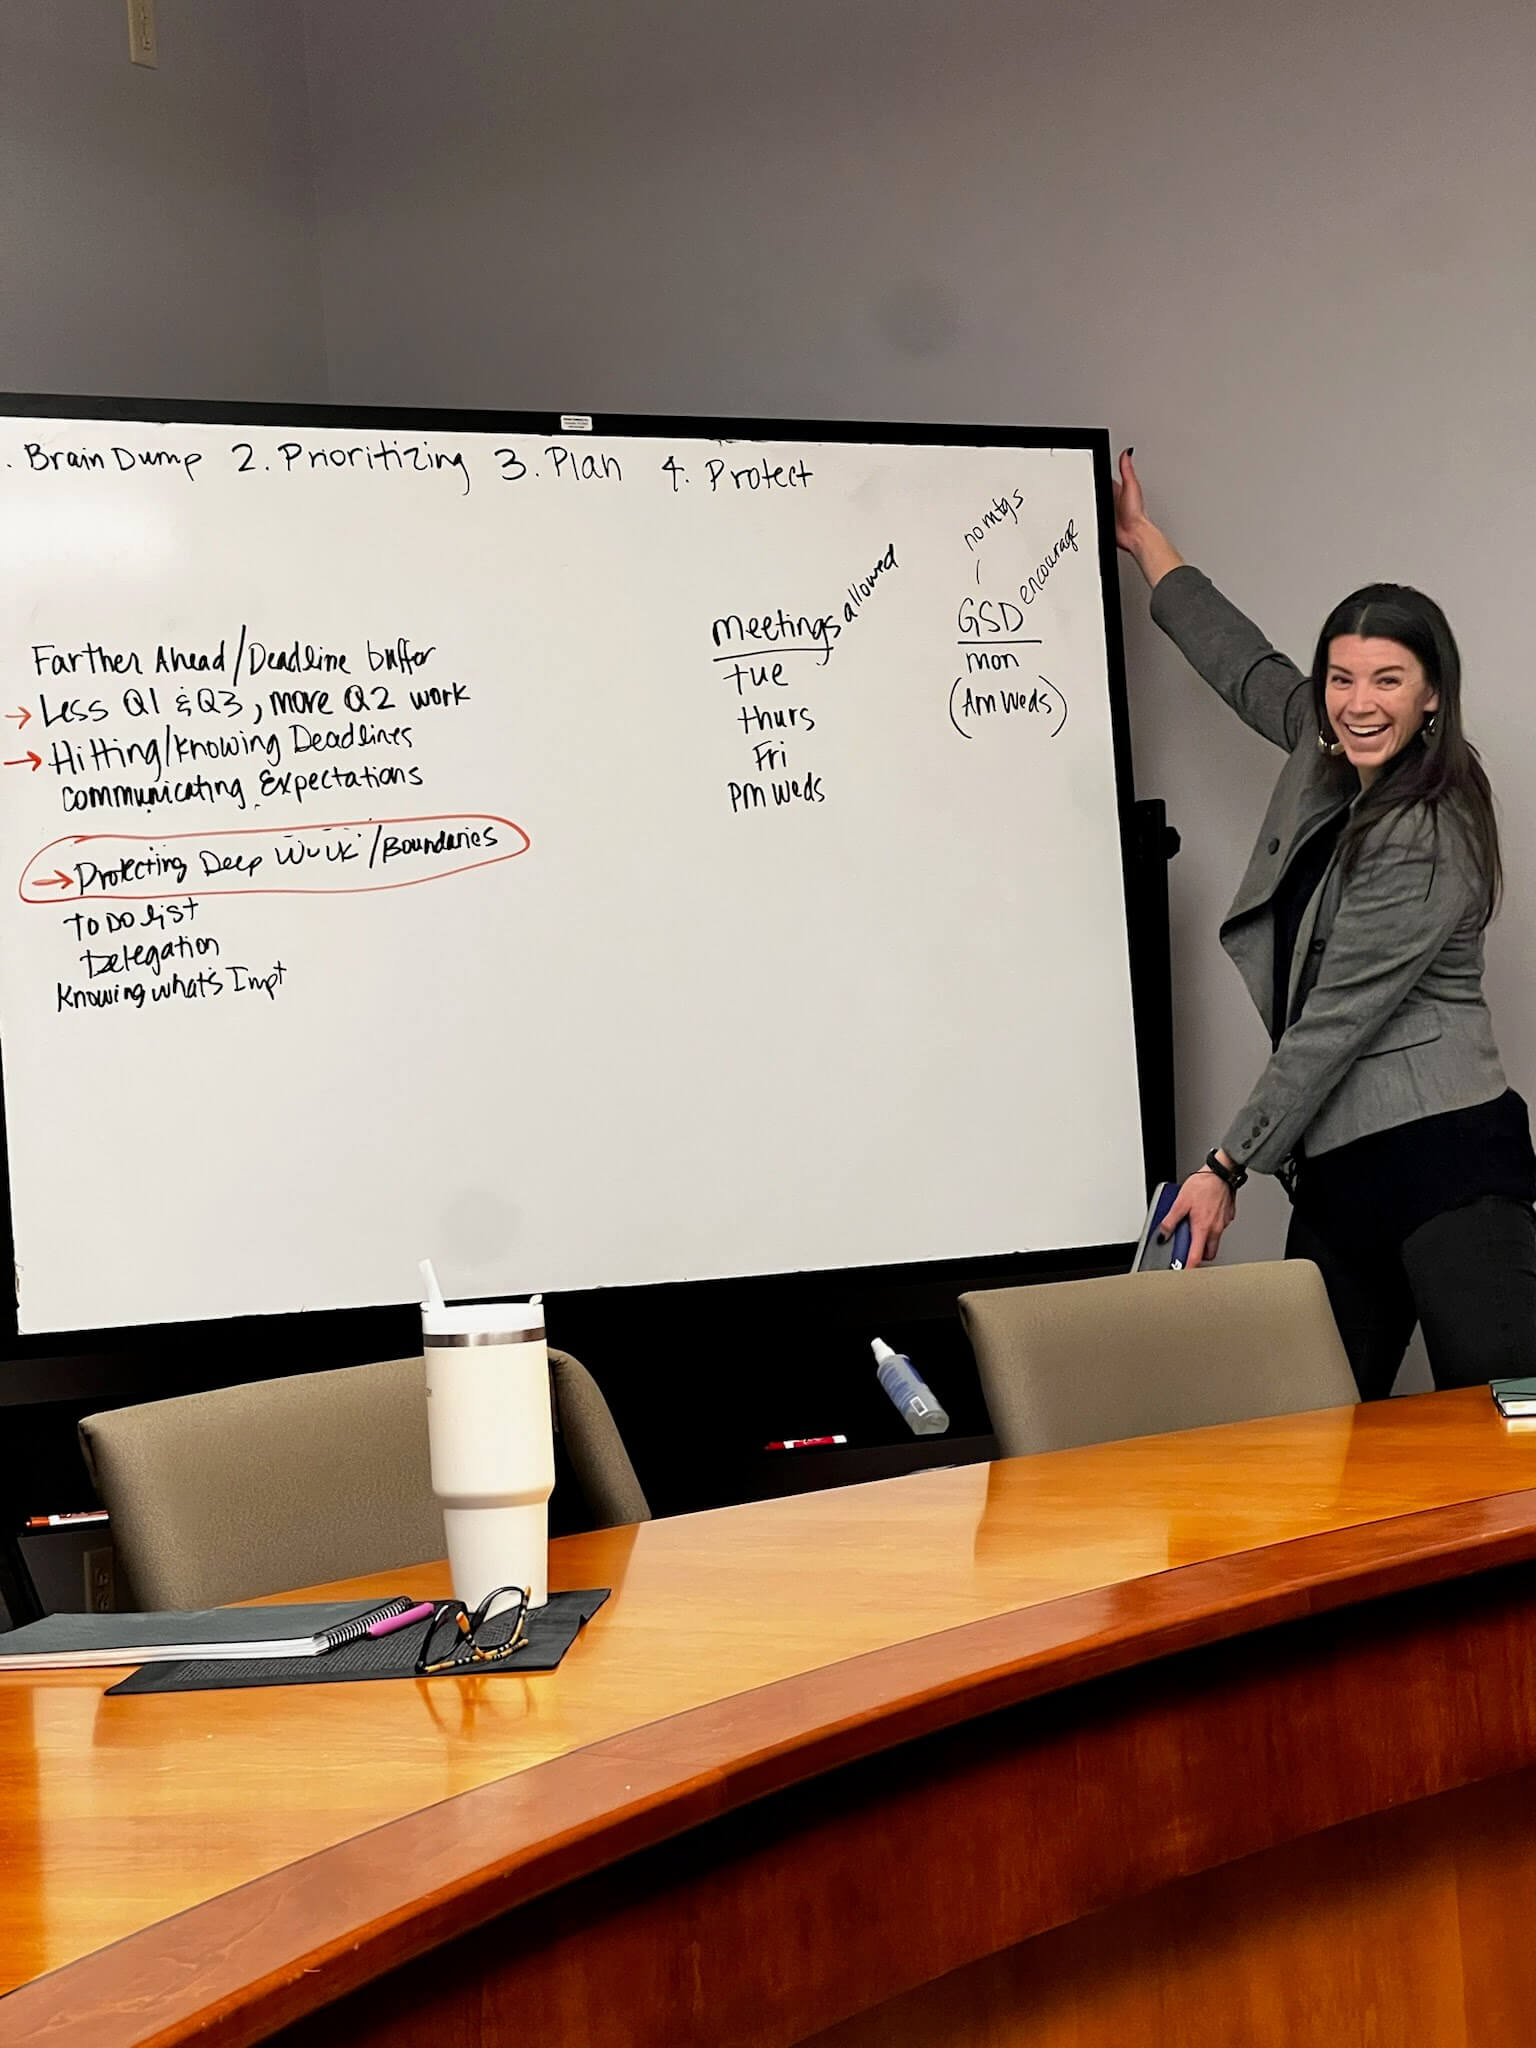 . Brain Dump 2. Prioritizing 3. Plan 4. Protect
Farther Ahead/Deadline buffer
→ Less Q1 & Q3, more Q2 work
→ Hitting/Knowing Deadlines
Communicating Expectations
→ Protecting Deep Work/Boundaries
To Do list
Delegation
Knowing what's Impt
meetings allowed
tue
thurs
Fri
PM weds
no mtgs
GSD encourage
mon
(Am Weds)